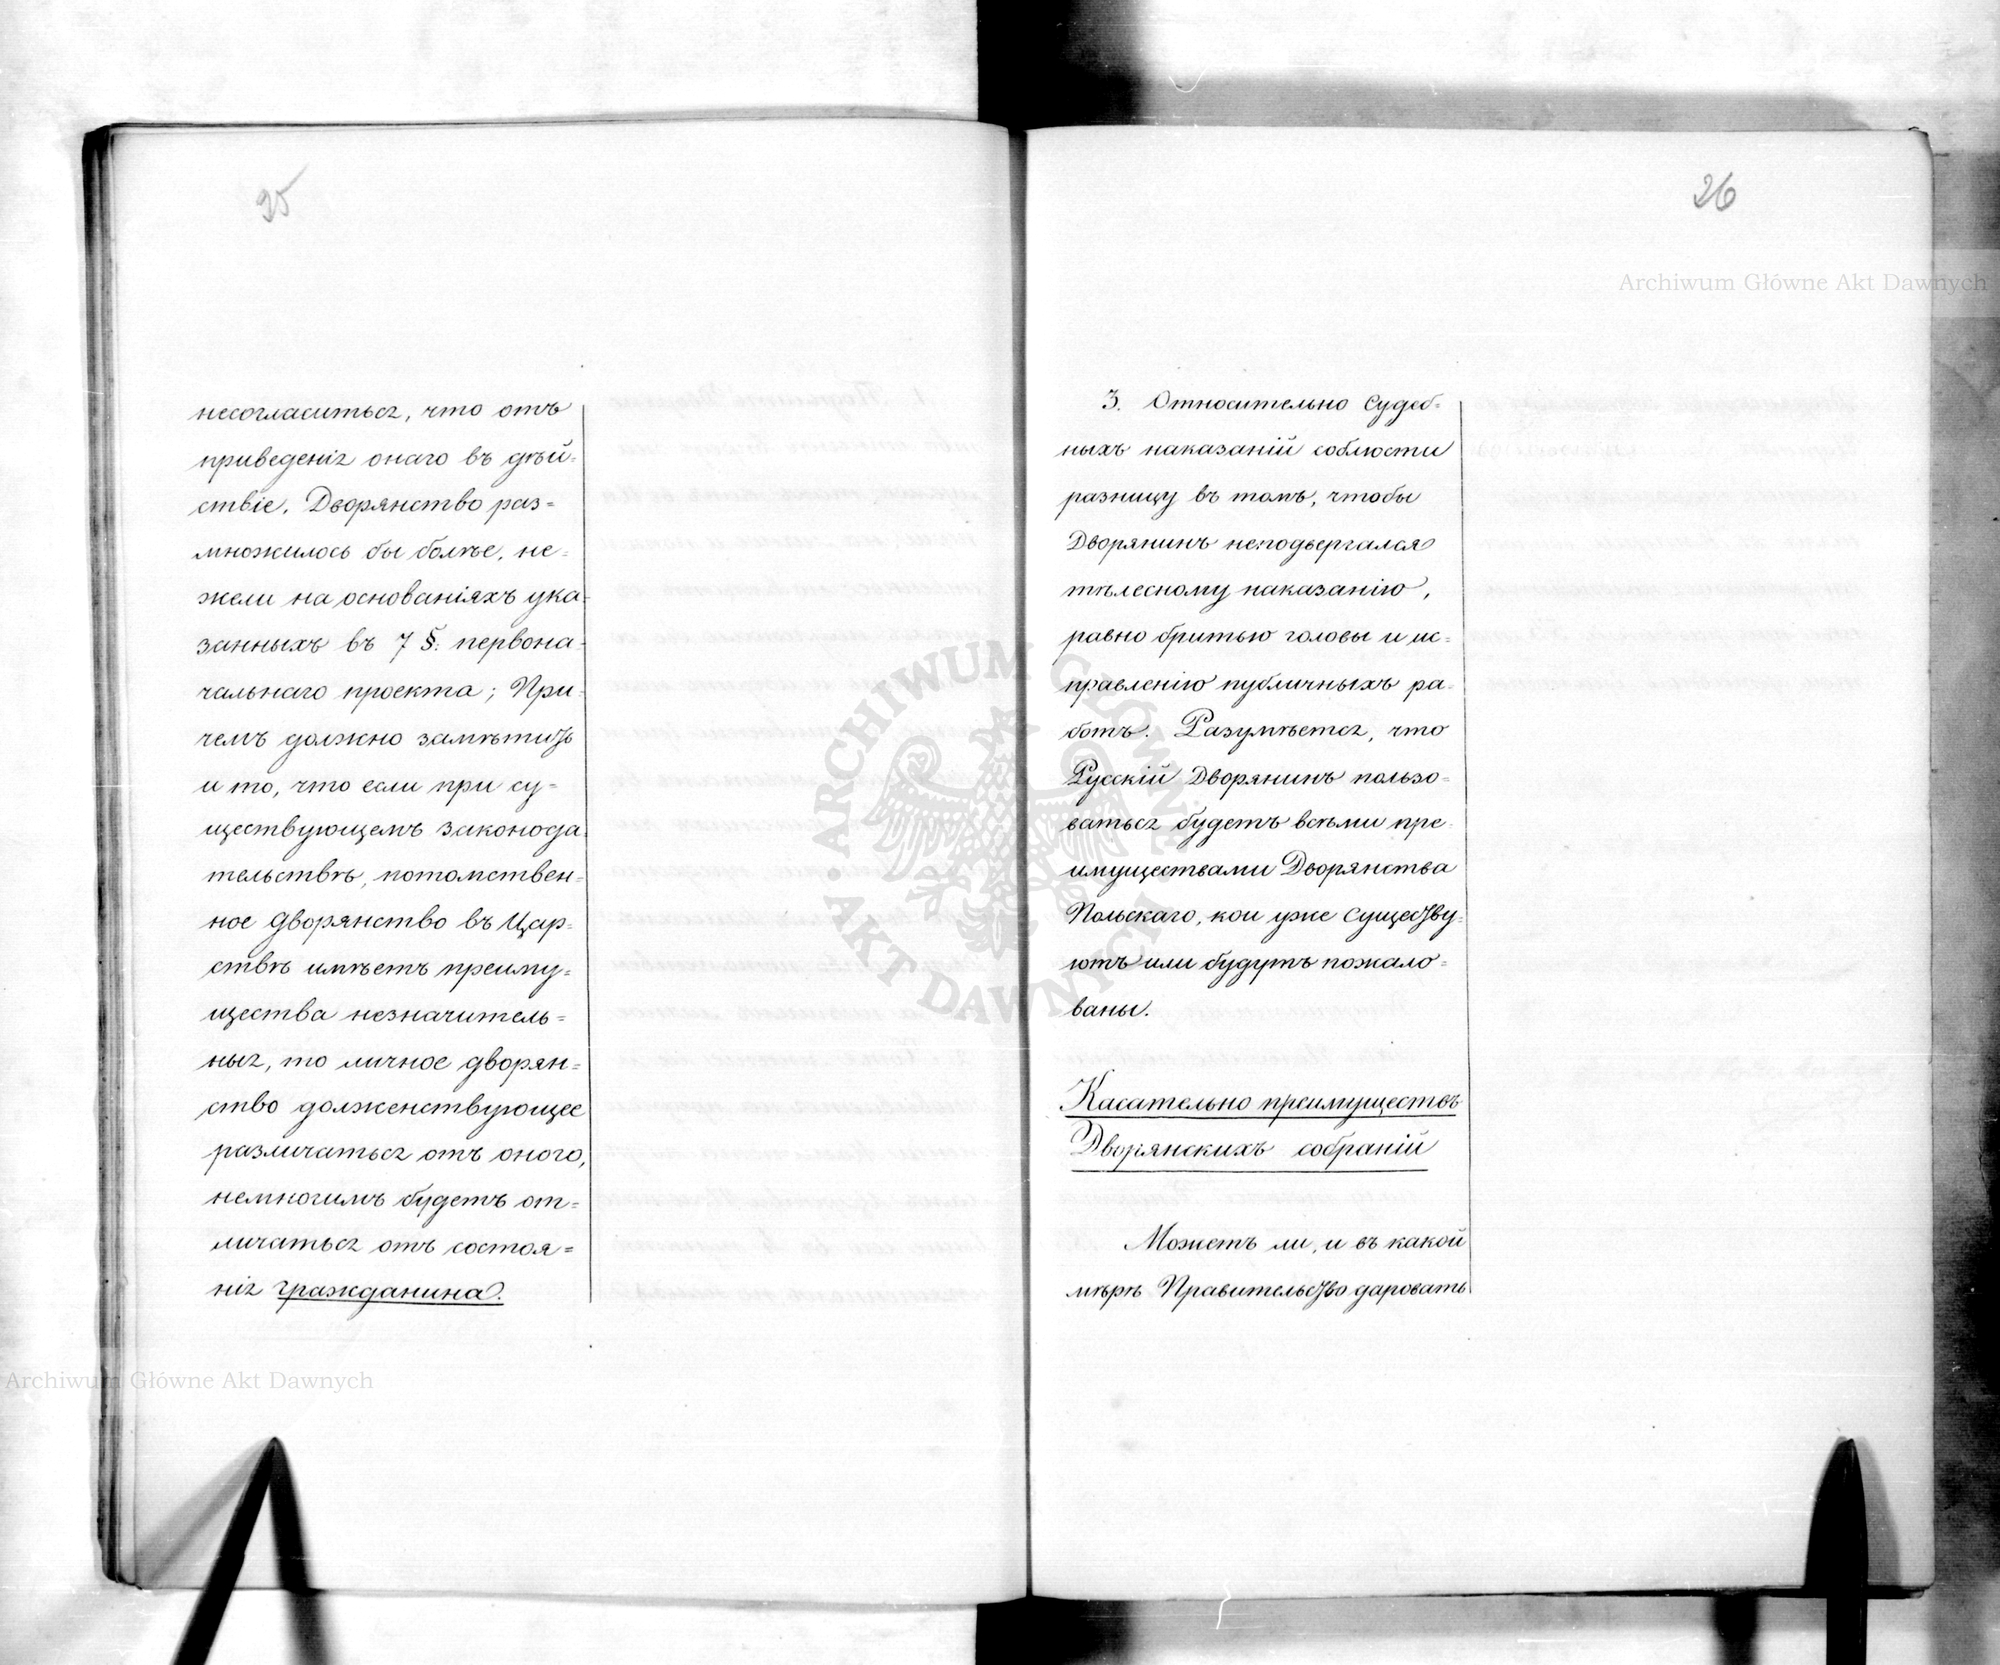 25
несогласиться, что отъ
приведенія онаго въ дѣй-
ствіе, Дворянство раз-
множилось бы болѣе, не-
жели на основаніяхъ ука-
занныхъ въ 7 §. первона-
чальнаго проекта; При-
чемъ должно замѣтить
и то, что если при су-
ществующемъ законода-
тельствѣ, потомствен-
ное дворянство въ Цар-
ствѣ имѣетъ преиму-
щества незначитель-
ныя, то личное дворян-
ство долженствующее
различаться отъ оного,
немногимъ будетъ от-
личаться отъ состоя-
нія гражданина.
26
3. Относительно Судеб-
ныхъ наказаній соблюсти
разницу въ томъ, чтобы
Дворянинъ неподвергался
тѣлесному наказанію,
равно бритью головы и ис-
правленію публичныхъ ра-
ботъ. Разумѣется, что
Русскій Дворянинъ пользо-
ваться будетъ всѣми пре-
имуществами Дворянства
Польскаго, кои уже существу-
ютъ или будутъ пожало-
ваны.
Касательно преимуществъ
Дворянскихъ собраній
Можетъ ли, и въ какой
мѣрѣ Правительство даровать
Archiwum Główne Akt Dawnych
Archiwum Główne Akt Dawnych
ARCHIWUM GŁÓWNE
AKT DAWNYCH